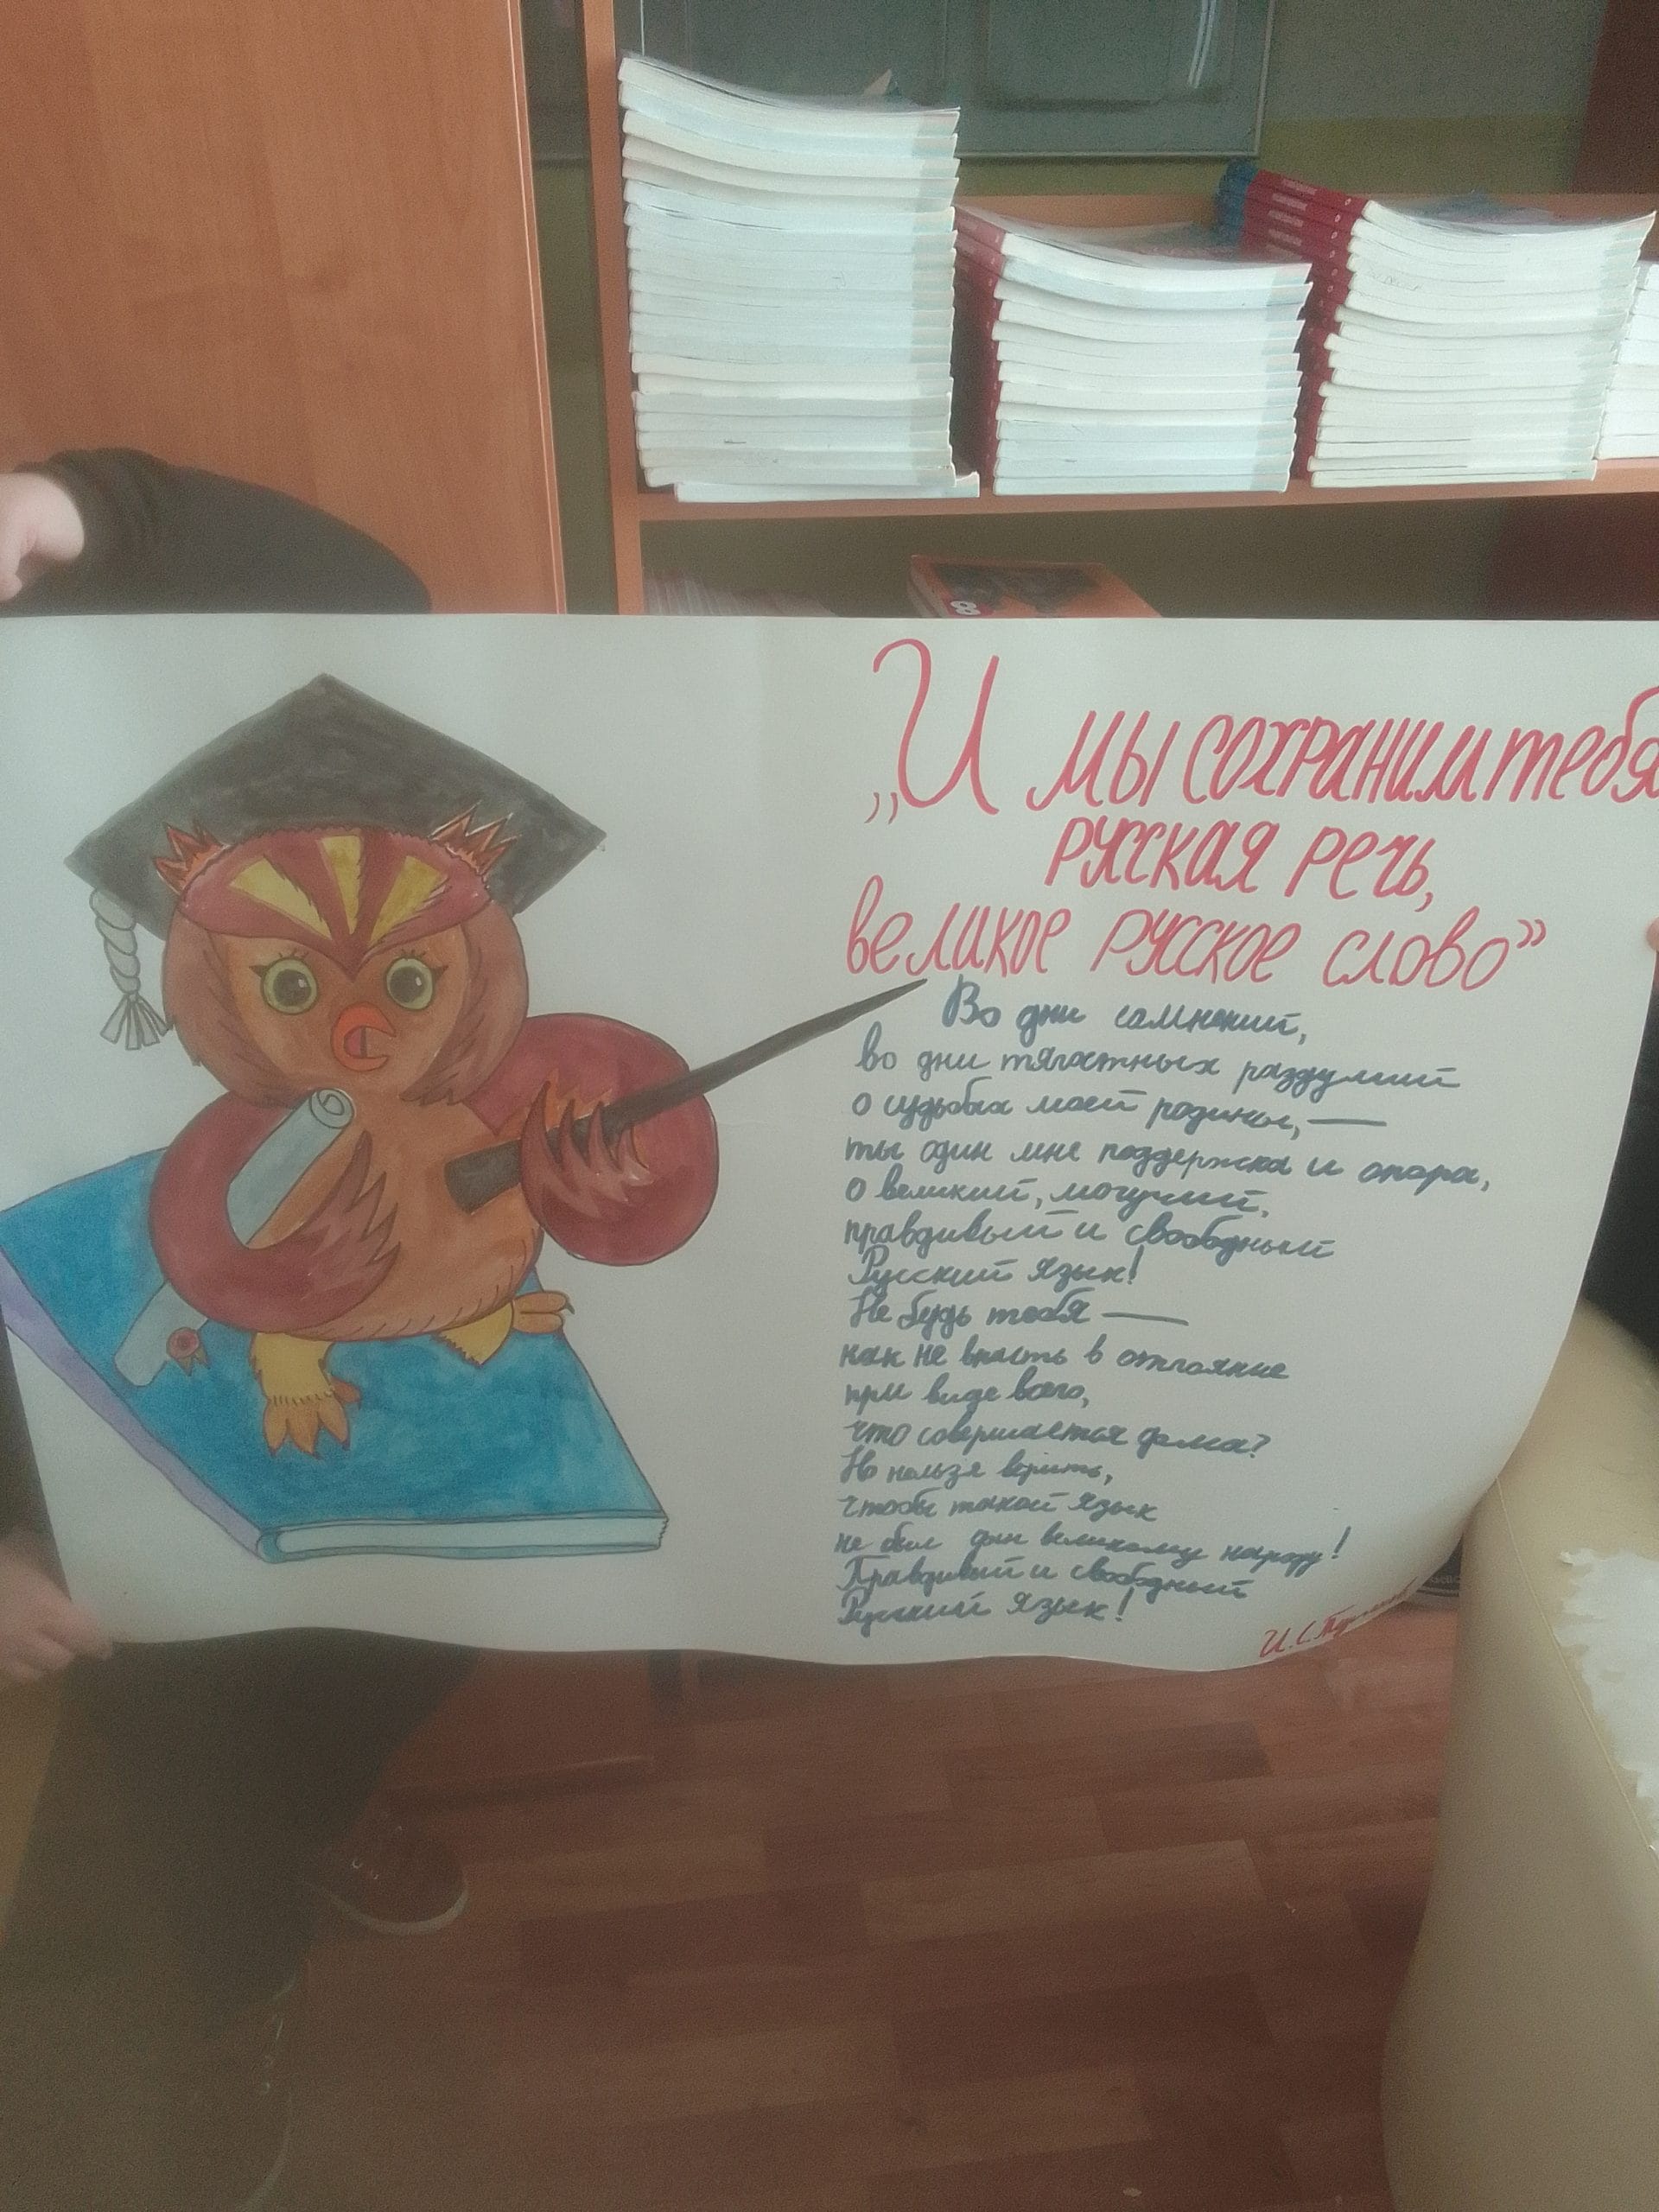 „И мы сохраним тебя
русская речь,
великое русское слово”
Во дни сомнений,
во дни тягостных раздумий
о судьбах моей родины, —
ты один мне поддержка и опора,
о великий, могучий,
правдивый и свободный
Русский язык!
Не будь тебя —
как не впасть в отчаяние
при виде всего,
что совершается дома?
Но нельзя верить,
чтобы такой язык
не был дан великому народу!
Правдивый и свободный
Русский язык!
И.С.
8